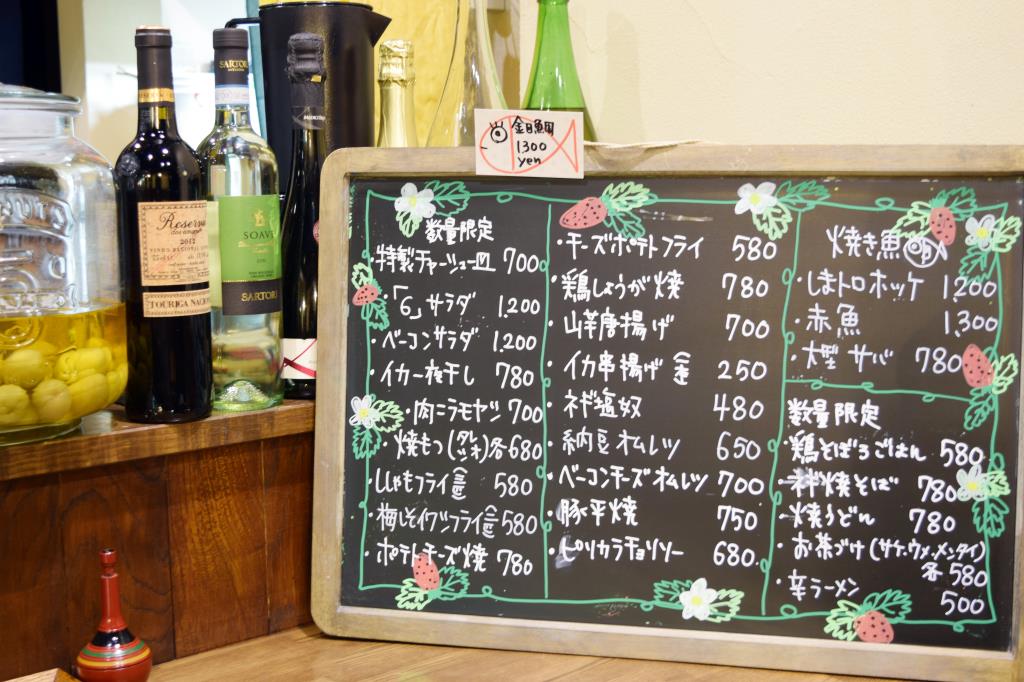 金目鯛
1300
yen
数量限定
・特製チャーシュー皿 700
・「6」サラダ 1.200
・ベーコンサラダ 1.200
・イカ一夜干し 780
・肉ニラモヤシ 700
・焼もつ(タレ シオ)各680
・ししゃもフライ 580
・梅しそイワシフライ 580
・ポテトチーズ焼 780
・チーズポテトフライ 580
・鶏しょうが焼 780
・山芋唐揚げ 700
・イカ串揚げ 250
・ネギ塩奴 480
・納豆オムレツ 650
・ベーコンチーズオムレツ 700
・豚平焼 750
・ピリカラチョリソー 680.
焼き魚
・しまトロホッケ 1,200
・赤魚 1,300
・大型サバ 780
数量限定
・鶏そぼろごはん 580
・ネギ焼そば 780
・焼うどん 780
・お茶づけ(サケ.ウメ.メンタイ)
各580
・辛ラーメン 500
Reserva
2012
TOURIGA NACIONAL
SARTORI
SOAVE
SARTORI